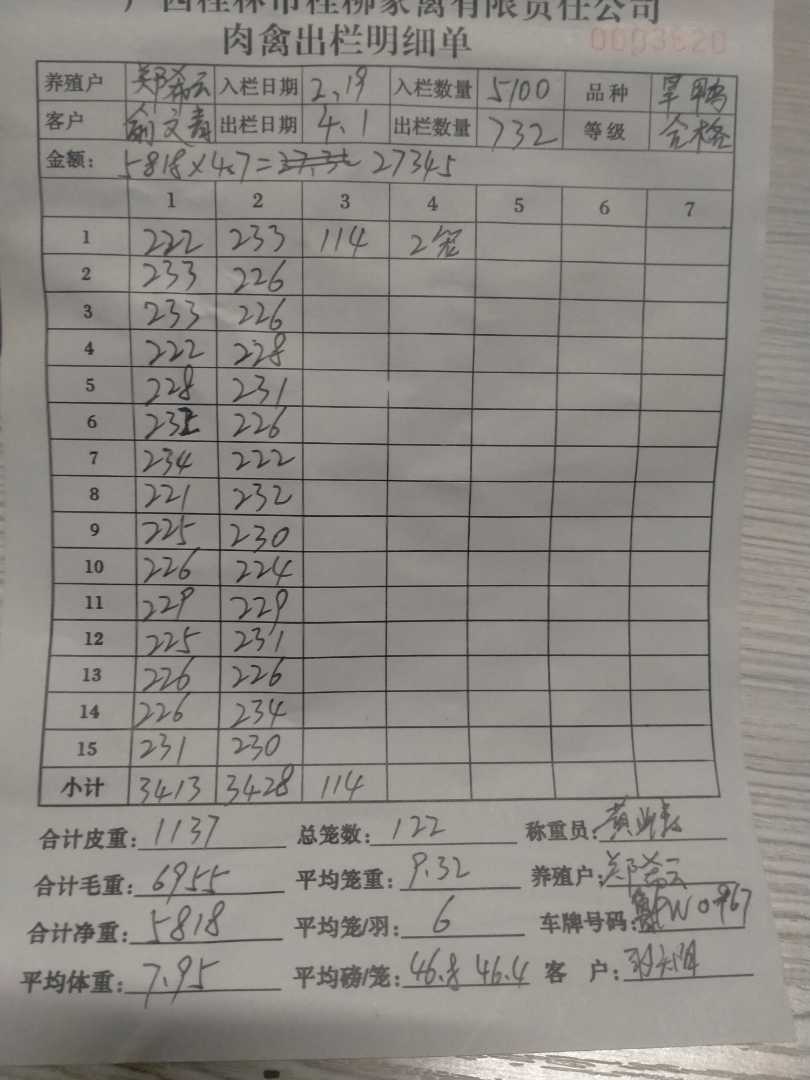 广西桂林市桂柳家禽有限责任公司
肉禽出栏明细单 0003620
养殖户 郑希云 入栏日期 2.19 入栏数量 5100 品种 旱鸭
客户 俞文青 出栏日期 4.1 出栏数量 732 等级 合格
金额: 5818×4.7= 27345
1 2 3 4 5 6 7
1 222 233 114 2笼
2 233 226
3 233 226
4 222 228
5 228 231
6 232 226
7 234 222
8 221 232
9 225 230
10 226 224
11 229 229
12 225 231
13 226 226
14 226 234
15 231 230
小计 3413 3428 114
合计皮重: 1137 总笼数: 122 称重员:
合计毛重: 6955 平均笼重: 9.32 养殖户: 郑希云
合计净重: 5818 平均笼/羽: 6 车牌号码:
平均体重: 7.95 平均磅/笼: 46.8 46.4 客 户: